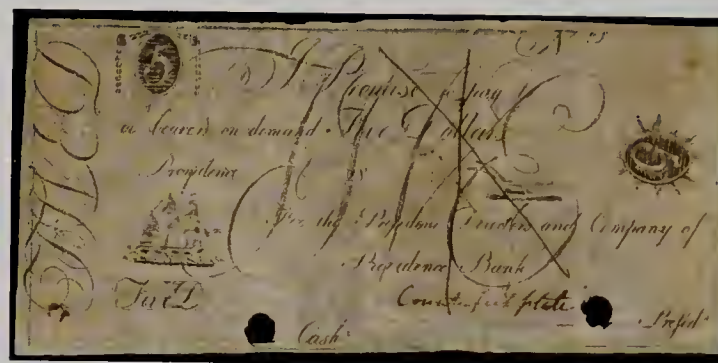 5
N.
I Promise to pay to
or bearer on demand Five Dollars
Providence
For the President Directors and Company of
Providence Bank
Five D
Counterfeit plate
Cash.
Presid.